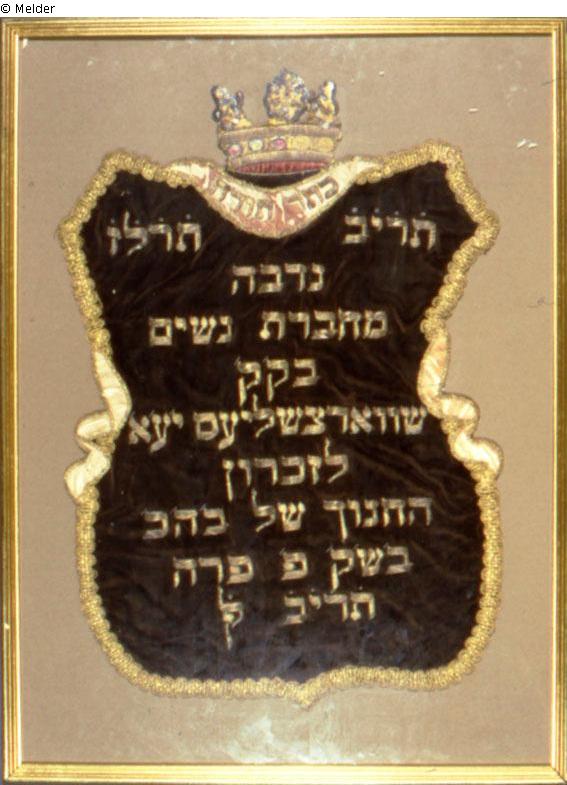 © Melder
כתר תורה
תריב תרלז
נדבה
מחברת נשים
בקק
שווארצשליעס יעא
לזכרון
החנוך של בהכ
בשק פ פרה
תריב ק